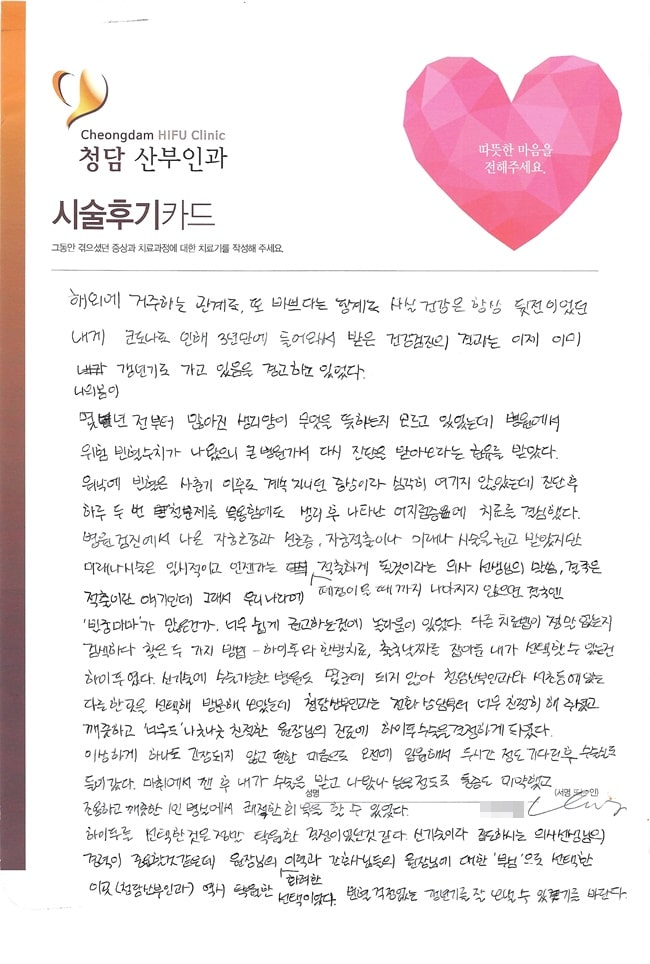 Cheongdam HIFU Clinic
청담 산부인과
따뜻한 마음을
전해주세요.
시술후기카드
그동안 겪으셨던 증상과 치료과정에 대한 치료기를 작성해 주세요.
해외에 거주하는 관계로, 또 바쁘다는 핑계로 사실 건강은 항상 뒷전이었던
내게 코로나로 인해 3년만에 들어와서 받은 건강검진의 결과는 이제 이미
나의몸이
갱년기로 가고 있음을 경고하고 있었다.
몇년 전부터 많아진 생리양이 무엇을 뜻하는지 모르고 있었는데 병원에서
위험 빈혈수치가 나왔으니 큰병원가서 다시 진단을 받아보라는 권유를 받았다.
워낙에 빈혈은 사춘기 이후로 계속 지니던 증상이라 심각히 여기지 않았는데 진단후
하루 두 번 철분제를 복용함에도 생리후 나타난 어지럼증에 치료를 결심했다.
병원검진에서 나온 자궁근종과 선근증, 자궁적출이나 미레나시술을 권고 받았지만
미레나시술은 일시적이고 언젠가는 적출하게 될것이라는 의사 선생님의 말씀, 결국은
폐경이 될 때까지 나아지지 않으면 결국엔
적출이란 얘기인데 그래서 우리나라에
'빈궁마마'가 많은건가. 너무 쉽게 권고하는것에 놀라움이 있었다. 다른 치료법이 정말 없는지
검색하다 찾은 두 가지 방법 - 하이푸와 한방치료, 출국날짜를 잡아둔 내가 선택할 수 있는건
하이푸였다. 신기술에 수술가능한 병원도 몇군데 되지 않아 청담산부인과와 서초동에 있는
다른 한곳을 선택해 방문해 보았는데 청담산부인과는 전화상담부터 너무 친절히 해 주셨고
깨끗하고 '너무도' 나긋나긋 친절한 원장님의 진료에 하이푸수술을 결정하게 되었다.
이상하게 하나도 긴장되지 않고 편한 마음으로 오전에 입원해서 두시간 정도 기다린후 수술실로
들어갔다. 마취에서 깬 후 내가 수술을 받고 나왔나 싶을정도로 통증도 미약했고
성명
(서명 또는 인)
조용하고 깨끗한 1인 병실에서 쾌적한 회복을 할 수 있었다.
하이푸를 선택한것은 정말 탁월한 결정이었던것 같다. 신기술이라 집도하시는 의사선생님의
경력이 중요할것같은데 원장님의 이력과 간호사님들의 원장님에 대한 '부심'으로 선택한
화려한
이곳(청담산부인과) 역시 탁월한 선택이었다. 빈혈 걱정없는 갱년기를 잘 보낼 수 있기를 바란다.